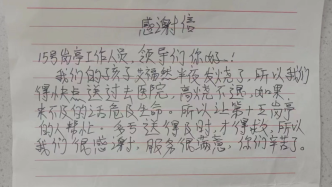 感谢信
15号岗亭工作人员、领导们你好!
我们的孩子艾 然半夜发烧了,所以我们
得快点送过去医院,高烧不退,如果
来不及的话危及生命。所以让第十五岗亭
的人帮忙,多亏送得及时,才得救,所以
我们很感谢,服务很满意,你们辛苦了。